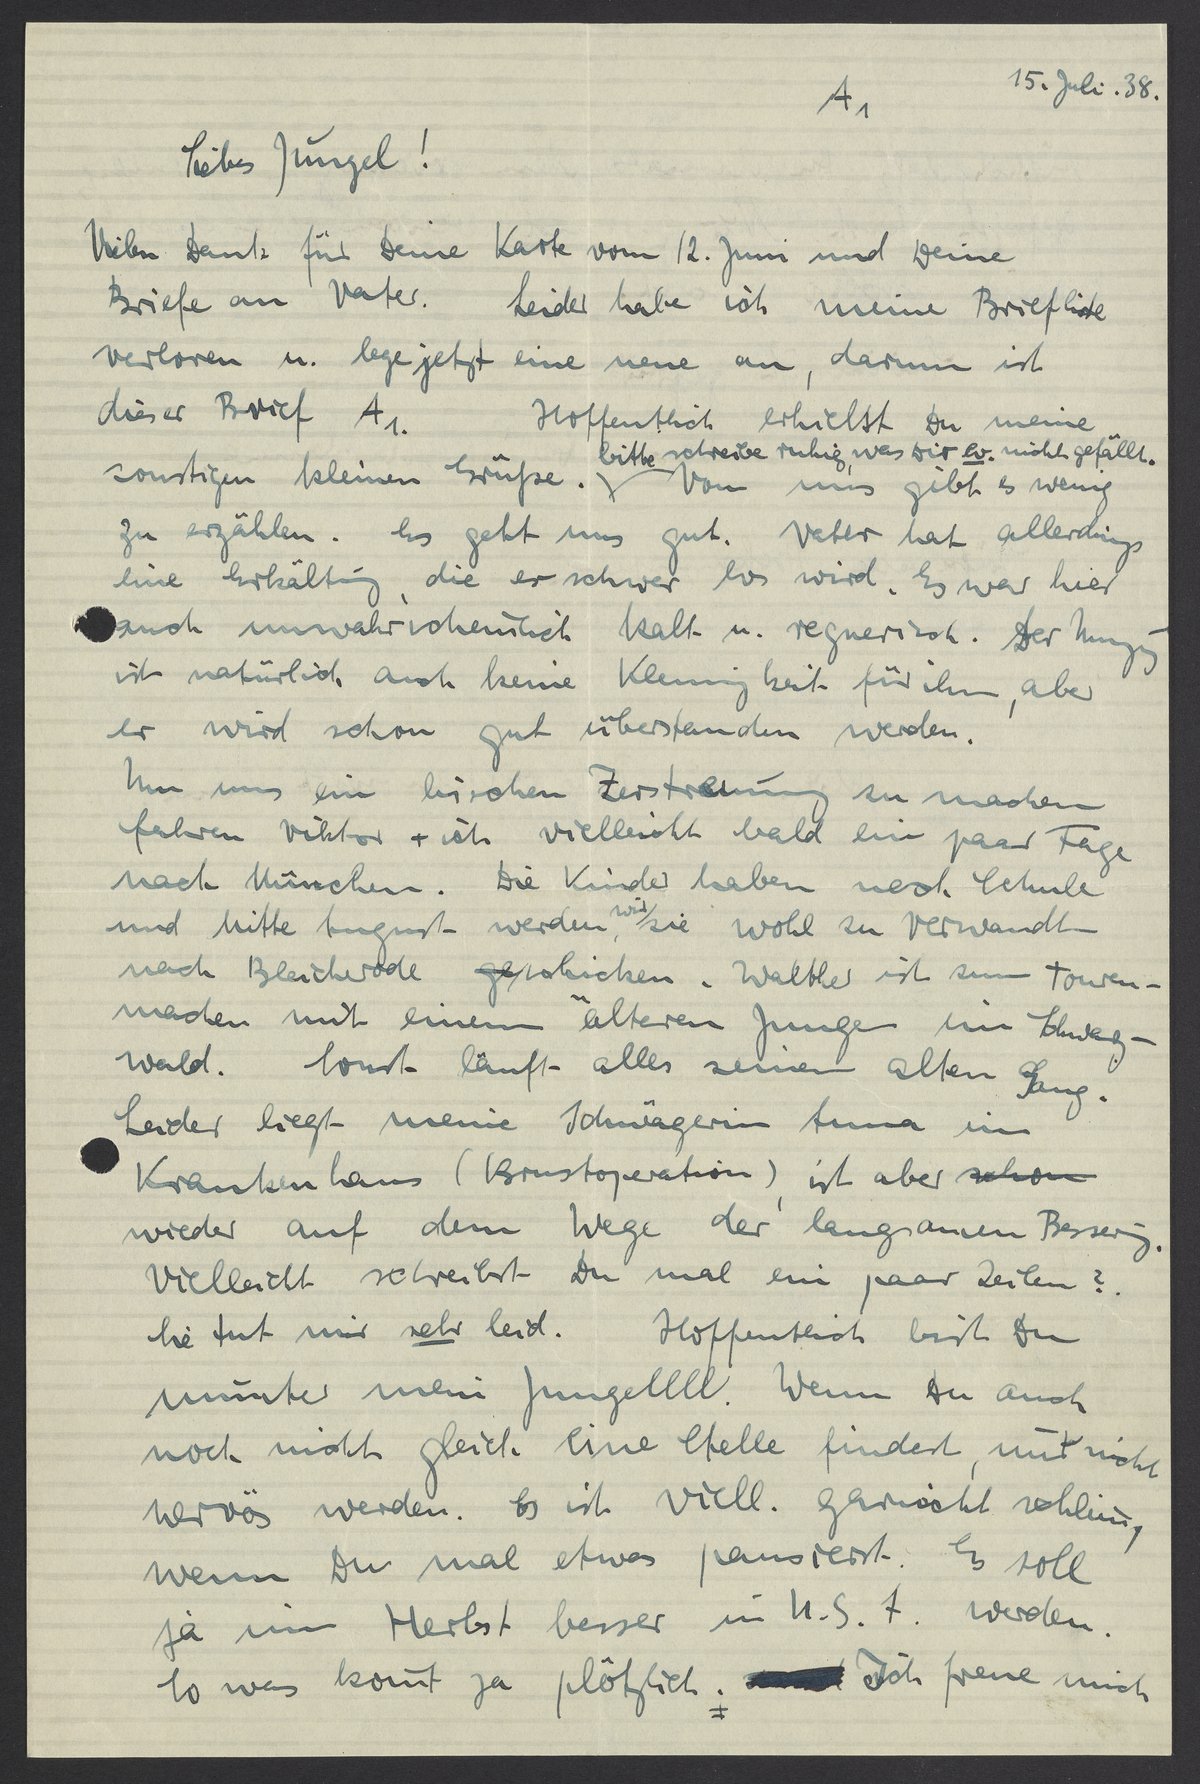 15. Juli. 38.
A1
Liebes Jüngel!
Vielen Dank für Deine Karte vom 12. Juni und Deine
Briefe an Vater. Leider habe ich meine Briefliste
verloren u. lege jetzt eine neue an, darum ist
dieser Brief A1. Hoffentlich erhielst Du meine
bitte schreibe ruhig, was Dir ev. nicht gefällt.
sonstigen kleinen Grüße. Von uns gibt es wenig
zu erzählen. Es geht uns gut. Vater hat allerdings
eine Erkältung, die er schwer los wird. Es war hier
auch unwahrscheinlich kalt u. regnerisch. Der Umzug
ist natürlich auch keine Kleinigkeit für ihn, aber
er wird schon gut überstanden werden.
Um uns ein bischen Zerstreuung zu machen
fahren Viktor + ich vielleicht bald ein paar Tage
nach München. Die Kinder haben noch Schule
und Mitte August werden wir sie wohl zu Verwandt
nach Bleicherode geschicken. Walther ist zum Touren-
machen mit einem älteren Jungen im Schwarz-
wald. Sonst läuft alles seinen alten Gang.
Leider liegt meine Schwägerin Anna im
Krankenhaus (Brustoperation), ist aber schon
wieder auf dem Wege der langsamen Besserung.
Vielleicht schreibst Du mal ein paar Zeilen?
Sie tut mir sehr leid. Hoffentlich bist Du
munter mein Jungellll. Wenn Du auch
noch nicht gleich eine Stelle findest, nur nicht
nervös werden. Es ist viell. garnicht schlimm,
wenn Du mal etwas pausierst. Es soll
ja im Herbst besser in U.S.A. werden.
So was kommt ja plötzlich. Ich freue mich